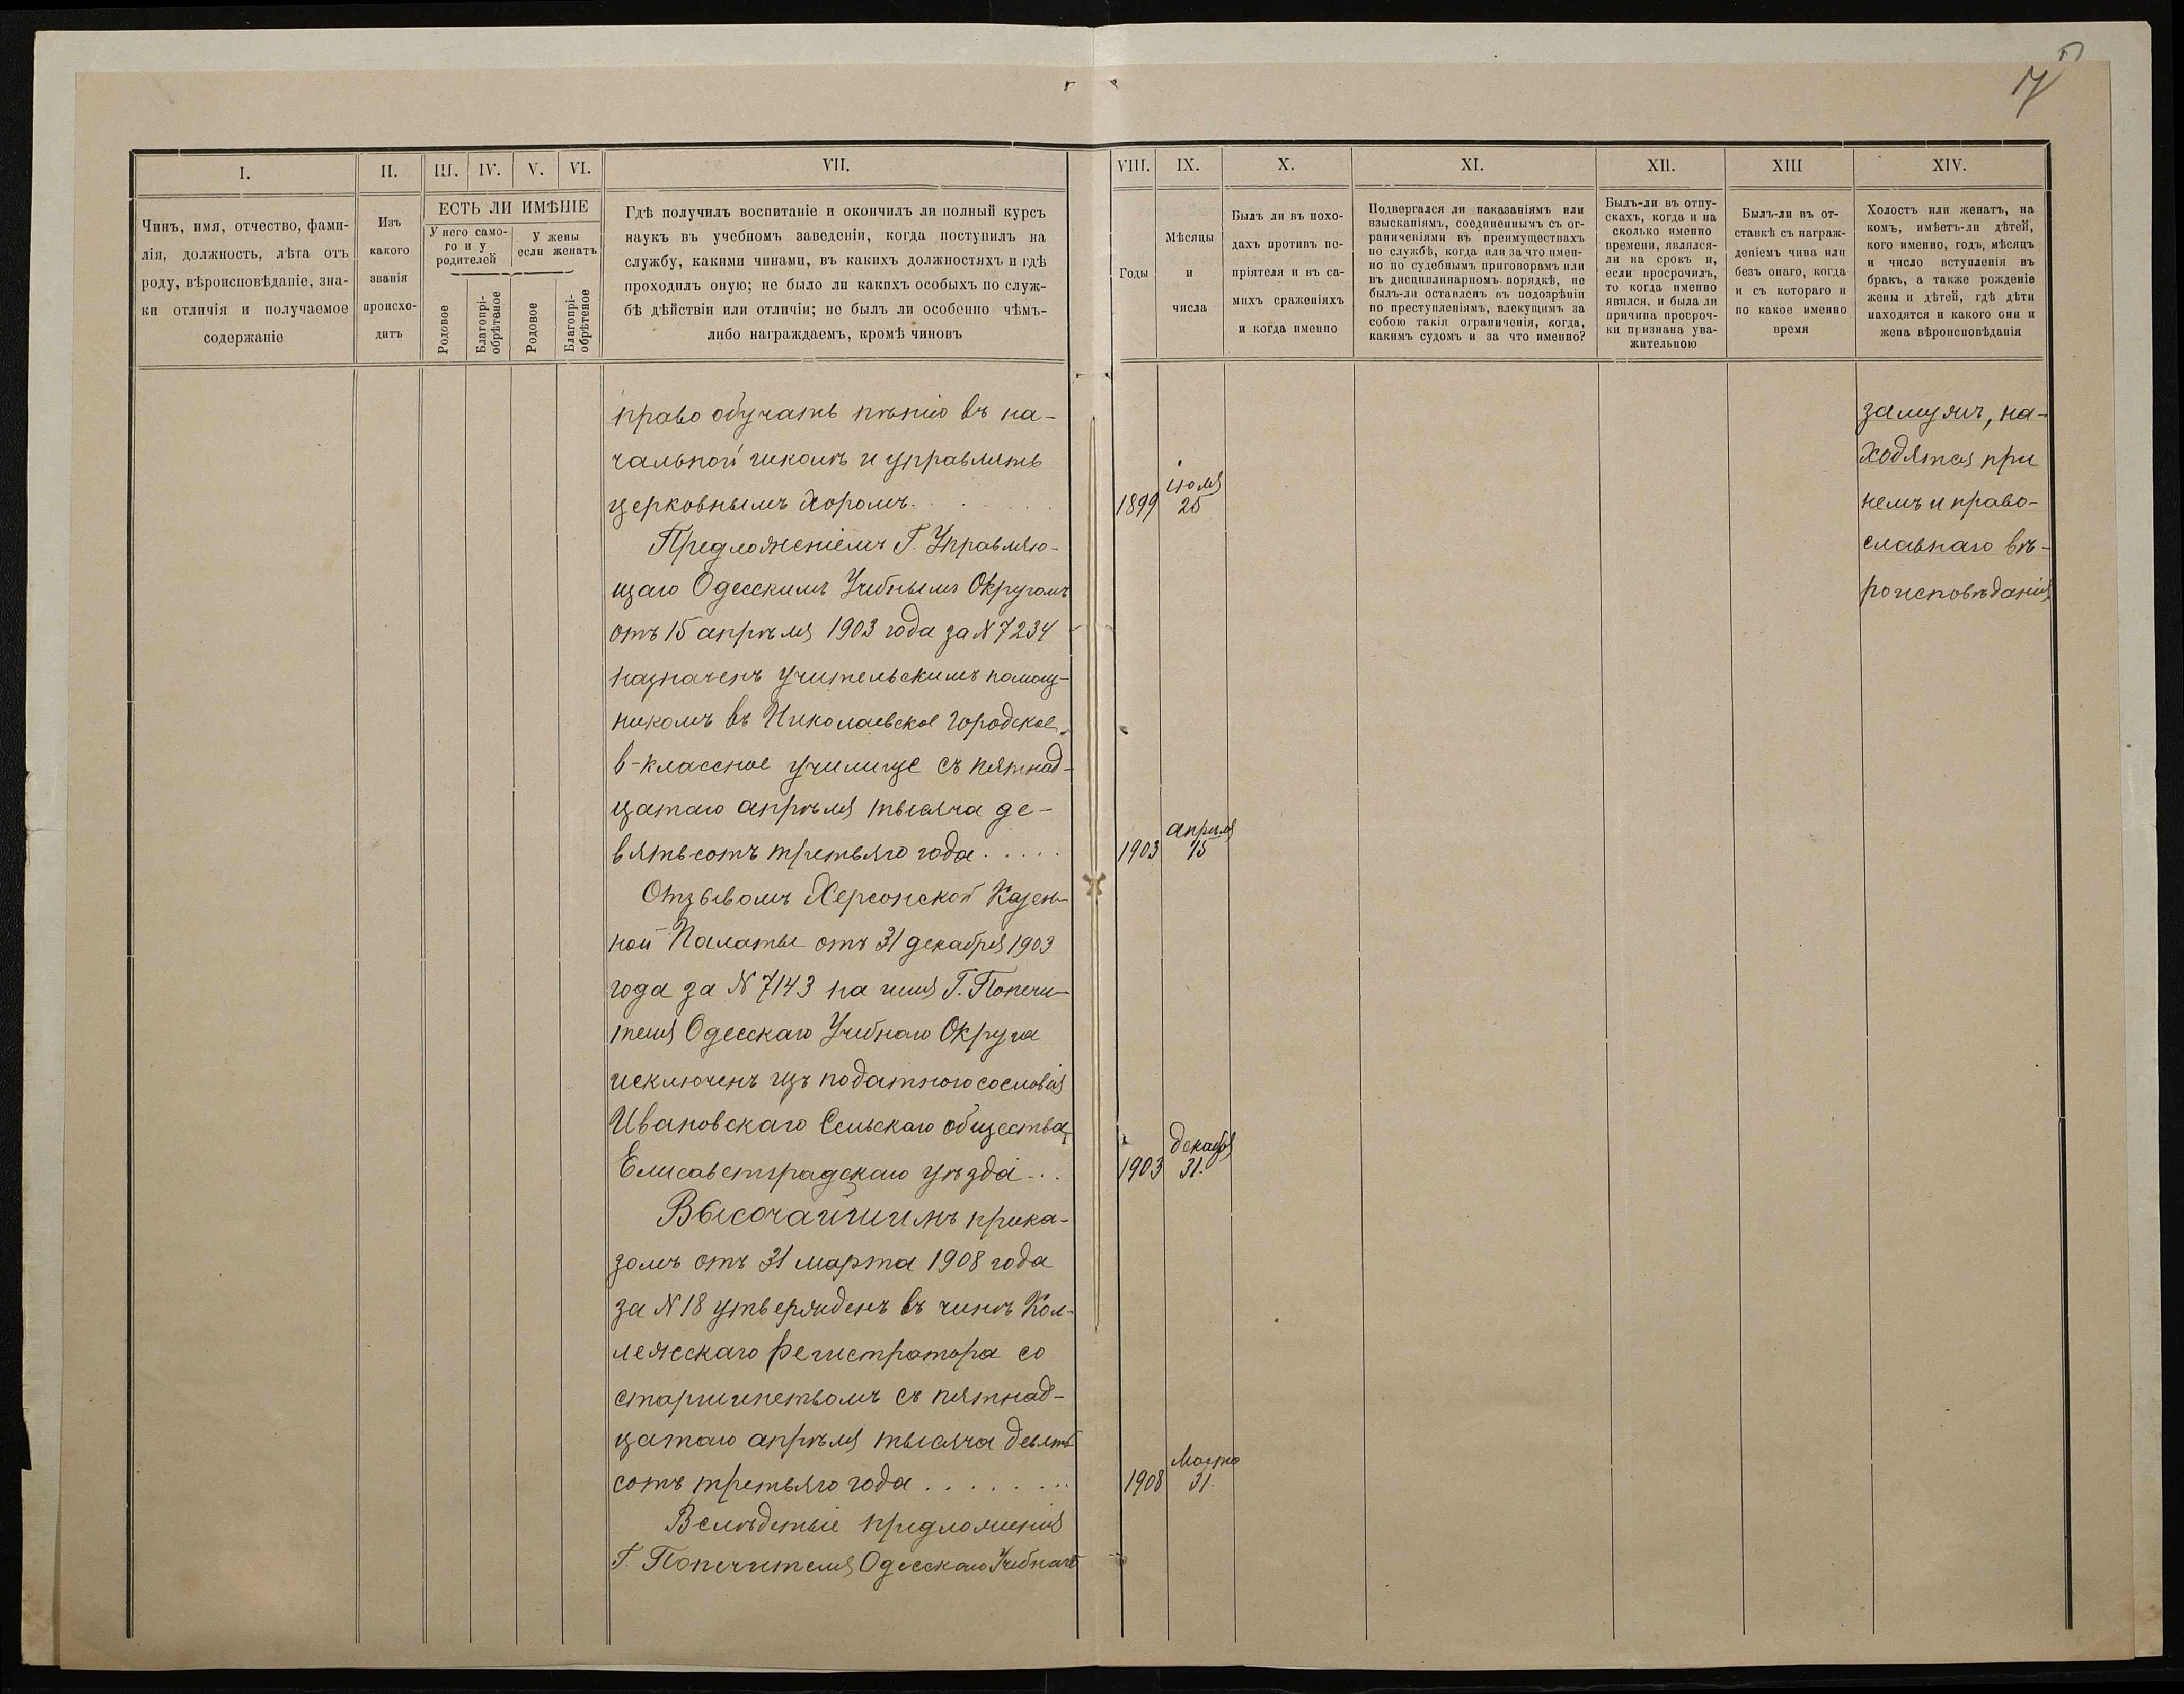 7
I.
II.
III.
IV.
V.
VI.
VII.
VIII.
IX.
X.
XI.
XII.
XIII
XIV.
Чинъ, имя, отчество, фами-
лія, должность, лѣта отъ
роду, вѣроисповѣданіе, зна-
ки отличія и получаемое
содержаніе
Изъ
какого
званія
происхо-
дитъ
ЕСТЬ ЛИ ИМѢНІЕ
У него само-
го и у
родителей
У жены
если женатъ
Родовое
Благопрі-
обрѣтеное
Родовое
Благопрі-
обрѣтеное
Гдѣ получилъ воспитаніе и окончилъ ли полный курсъ
наукъ въ учебномъ заведеніи, когда поступилъ на
службу, какими чинами, въ какихъ должностяхъ и гдѣ
проходилъ оную; не было ли какихъ особыхъ по служ-
бѣ дѣйствіи или отличіи; не былъ ли особенно чѣмъ-
либо награждаемъ, кромѣ чиновъ
Годы
Мѣсяцы
и
числа
Былъ ли въ похо-
дахъ противъ не-
пріятеля и въ са-
михъ сраженіяхъ
и когда именно
Подвергался ли наказаніямъ или
взысканіямъ, соединеннымъ съ ог-
раниченіями въ преимуществахъ
по службѣ, когда или за что имен-
но по судебнымъ приговорамъ или
въ дисциплинарномъ порядкѣ, не
былъ-ли оставленъ въ подозрѣніи
по преступленіямъ, влекущимъ за
собою такія ограниченія, когда,
какимъ судомъ и за что именно?
Былъ-ли въ отпу-
скахъ, когда и на
сколько именно
времени, являлся-
ли на срокъ и,
если просрочилъ,
то когда именно
явился, и была ли
причина просроч-
ки признана ува-
жительною
Былъ-ли въ от-
ставкѣ съ награж-
деніемъ чина или
безъ онаго, когда
и съ котораго и
по какое именно
время
Холостъ или женатъ, на
комъ, имѣетъ-ли дѣтей,
кого именно, годъ, мѣсяцъ
и число вступленія въ
бракъ, а также рожденіе
жены и дѣтей, гдѣ дѣти
находятся и какого они и
жена вѣроисповѣданія
право обучать пѣнію въ на-
чальной школѣ и управлять
церковнымъ хоромъ.
Предложеніемъ Г. Управляю-
щаго Одесскимъ Учебнымъ Округомъ
отъ 15 апрѣля 1903 года за N 7234
назначенъ учительскимъ помощ-
никомъ въ Николаевское городское
6-классное училище съ пятнад-
цатаго апрѣля тысяча де-
вятьсотъ третьяго года.....
Отзывомъ Херсонской Казен-
ной Палаты отъ 31 декабря 1903
года за N 7143 на имя Г. Попечи-
теля Одесскаго Учебнаго Округа
исключенъ изъ податного сословія
Ивановскаго Сельскаго общества,
Елисаветградскаго уѣзда...
Высочайшимъ прика-
зомъ отъ 31 марта 1908 года
за N 18 утвержденъ въ чинѣ Кол-
лежскаго Регистратора со
старшинствомъ съ пятнад-
цатаго апрѣля тысяча девять
сотъ третьяго года........
Вслѣдствіе предложенія
Г. Попечителя Одесскаго Учебнаго
іюля
1899 25
апрѣля
1903 15
декабря
1903 31.
Марта
1908 31.
замужъ, на-
ходятся при
немъ и право-
славнаго вѣ-
роисповѣданія